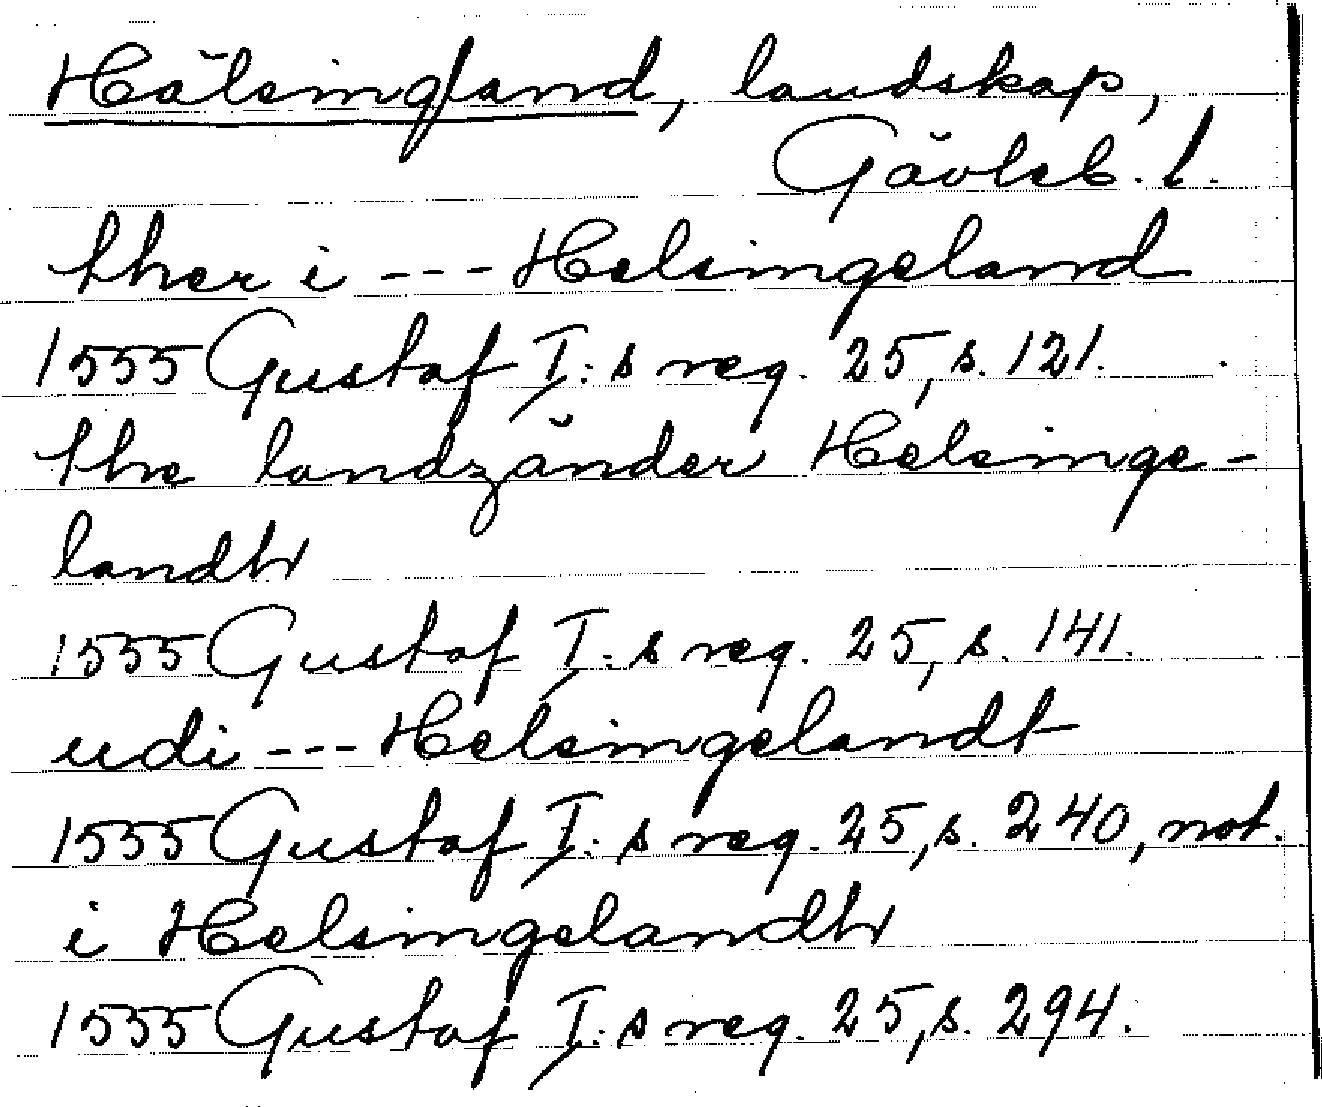 Hälsingland, landskap,
Gävleb. l.
ther i --- Helsingeland
1555 Gustaf I:s reg. 25, s. 121.
the landzänder Helsinge-
landh
1555 Gustaf I:s reg. 25, s. 141.
udi --- Helsingelandt
1555 Gustaf I:s reg. 25, s. 240, not.
i Helsingelandh
1555 Gustaf I:s reg. 25, s. 294.